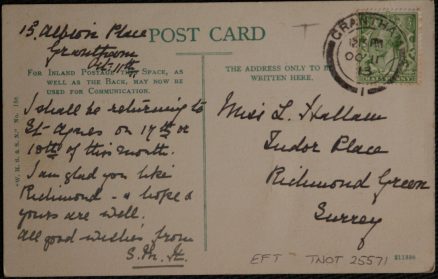 15, Albion Place
Grantham
Oct 11th
POST CARD
FOR INLAND POSTAGE THE SPACE, AS
WELL AS THE BACK, MAY NOW BE
USED FOR COMMUNICATION.
THE ADDRESS ONLY TO BE
WRITTEN HERE.
GRANTHAM
I shall be returning to
St Agnes on 17th or
18th of this month.
I am glad you like
Richmond - & hope
yours are well.
All good wishes from
S. M. H.
Miss L. Hallam
Tudor Place
Richmond Green
Surrey
EFT TNOT 25571